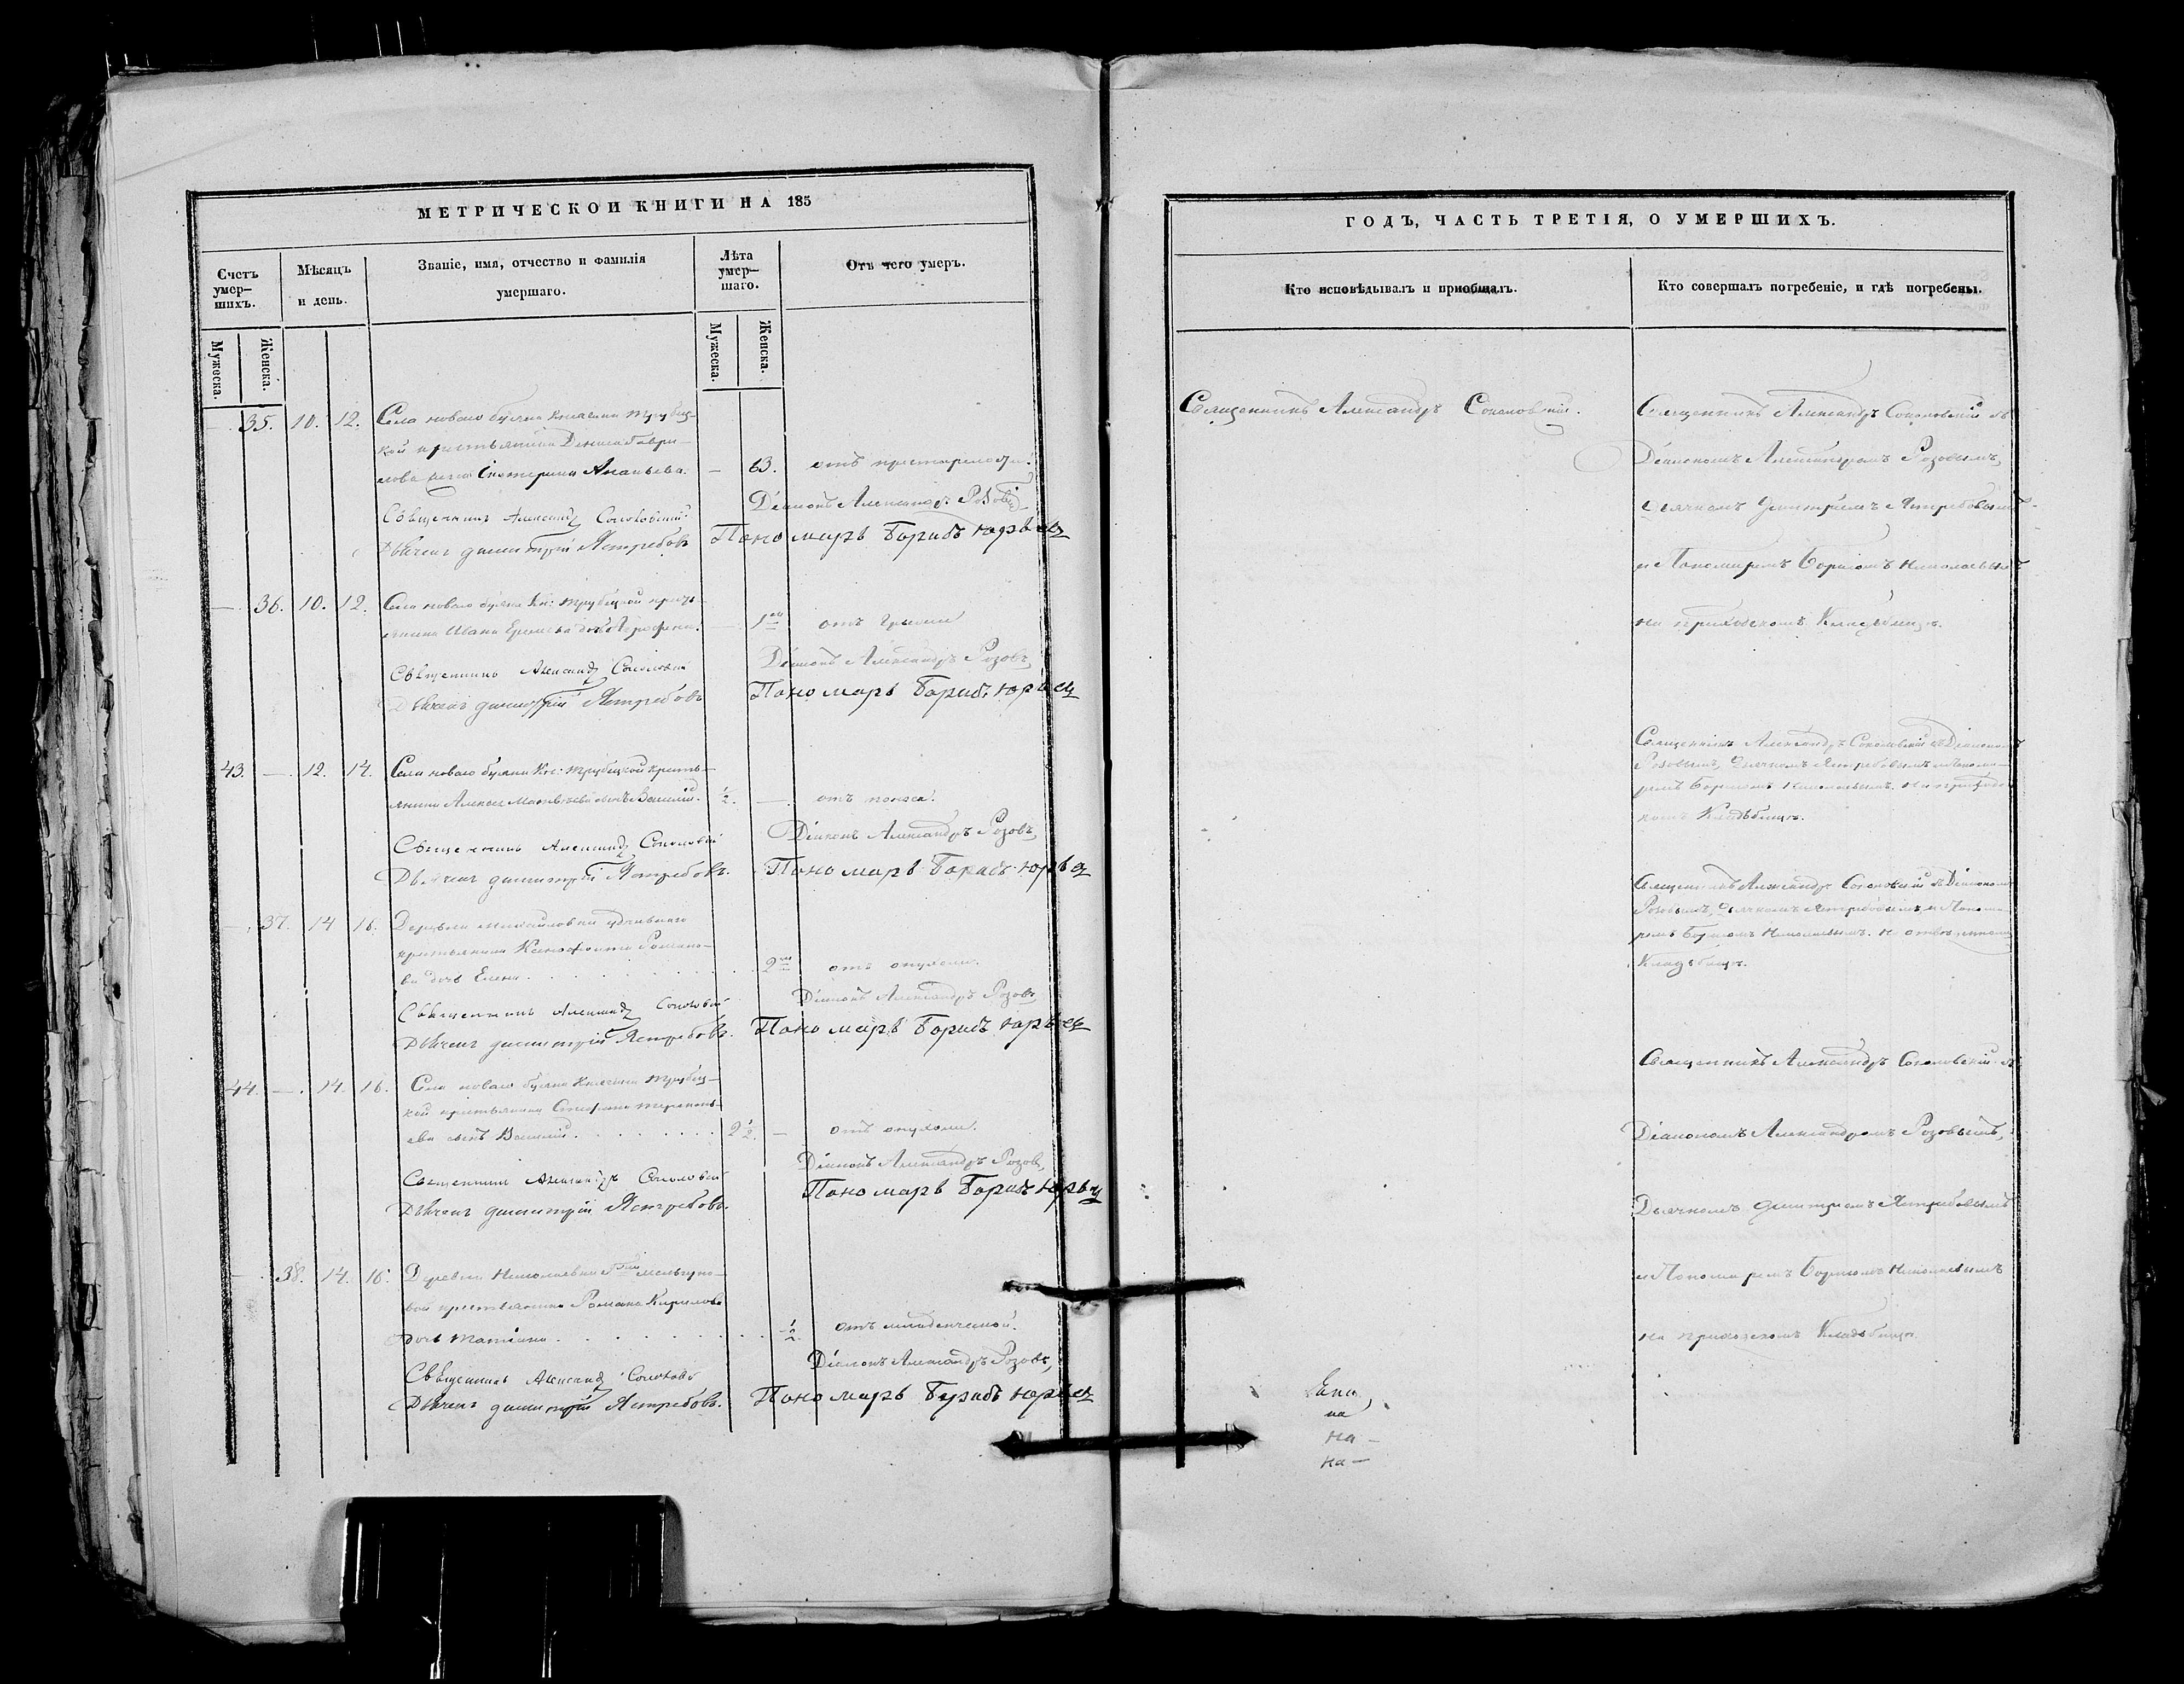 МЕТРИЧЕСКОЙ КНИГИ НА 185
Счетъ умер-шихъ.
Мѣсяцъ и день.
Званіе, имя, отчество и фамилія умершаго.
Лѣта умер-шаго.
Отъ чего умеръ.
Мужеска.
Женска.
Мужеска.
Женска.
— 35. 10. 12. Села новаго буяна Княгини Трубец-
кой крестьянина Дениса Гаври-
лова жена Екатерина Ананьева. — 63. отъ престарелости.
Священникъ Александръ Соколовскій Діаконъ Александръ Розовъ
Дьячекъ Димитрій Ястребовъ Пономарь Борисъ
— 36. 10. 12. Села новаго буяна Кн: Трубецкой кресть-
янина Ивана дочь — 1 отъ
Священникъ Александръ Діаконъ Александръ Розовъ
Дьячекъ Димитрій Ястребовъ Пономарь Борисъ
43. — 12. 14. Села новаго буяна Кн: Трубецкой кресть-
янина сынъ Василій. ½. — отъ поноса.
Священникъ Александръ Діаконъ Александръ Розовъ,
Дьячекъ Димитрій Ястребовъ. Пономарь Борисъ
— 37. 14 16. Деревни Михайловки удѣльнаго
крестьянина Ксенофонта Романо-
ва дочь Елена 2 отъ опухоли.
Священникъ Александръ Діаконъ Александръ Розовъ
Дьячекъ Димитрій Ястребовъ. Пономарь Борисъ
44. — 14. 16. Села новаго буяна Княгини Трубец-
кой крестьянина Стефана
ева сынъ Василій 2½. — отъ опухоли.
Діаконъ Александръ Розовъ,
Священникъ Александръ Пономарь Борисъ
Дьячекъ Димитрій Ястребовъ.
— 38. 14. 16. Деревни Николаевки Г-жи Мельгуно-
вой крестьянина Романа Кирилова
дочь Татіана ½. отъ младенческой.
Священникъ Александръ Діаконъ Александръ Розовъ,
Дьячекъ Димитрій Ястребовъ. Пономарь
ГОДЪ, ЧАСТЬ ТРЕТІЯ, О УМЕРШИХЪ.
Кто исповѣдывалъ и приобщалъ.
Кто совершалъ погребеніе, и гдѣ погребены.
Священникъ Александръ Соколовскій.
Священникъ Александръ Соколовскій съ
Діакономъ Александромъ Розовымъ,
Дьячкомъ Димитріемъ Ястребовымъ
и Пономаремъ Борисомъ Николаевымъ
на приходскомъ Кладбищѣ.
Священникъ Александръ Соколовскій съ Діакономъ
Розовымъ, Дьячкомъ Ястребовымъ и Понома-
ремъ Борисомъ Николаевымъ. на приход-
скомъ Кладбищѣ.
Священникъ Александръ Соколовскій съ Діакономъ
Розовымъ, Дьячкомъ Ястребовымъ и Понома-
ремъ Борисомъ Николаевымъ. на
Кладбищѣ.
Священникъ Александръ Соколовскій съ
Діакономъ Александромъ Розовымъ,
Дьячкомъ Димитріемъ Ястребовымъ
и Пономаремъ Борисомъ Николаевымъ
на приходскомъ Кладбищѣ.
на
на —
на —